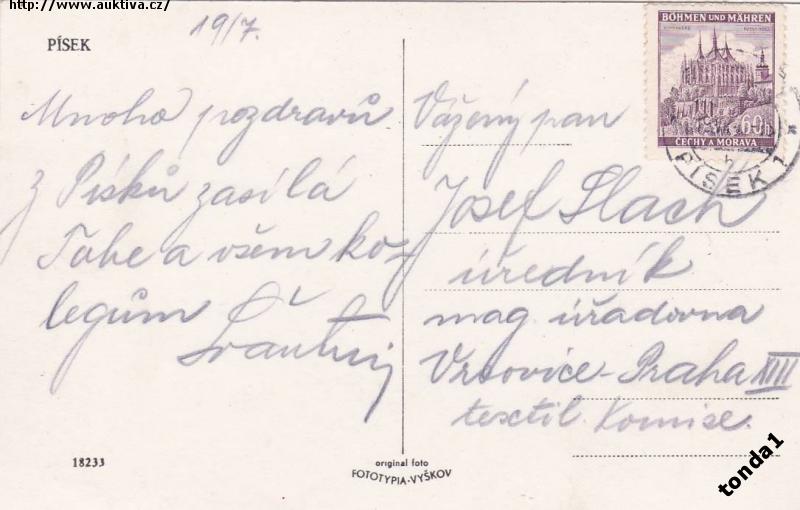 http://www.auktiva.cz/
19/7.
PÍSEK
Mnoho pozdravů
z Písků zasílá
Tobe a všem ko-
legům
BÖHMEN UND MÄHREN
60h
ČECHY A MORAVA
PÍSEK 1
Vážený pan
Josef Slach
úředník
mag. úřadovna
Vrsovice-Praha XIII
textil. Komise.
18233
original foto
FOTOTYPIA-VYŠKOV
tonda1